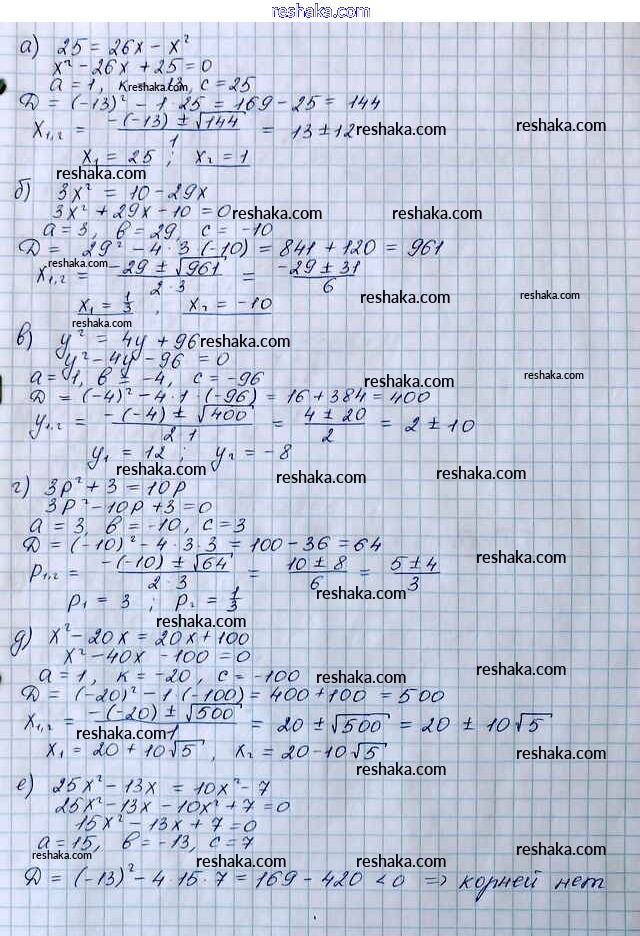 reshaka.com
а) 25 = 26x - x²
x² - 26x + 25 = 0
a = 1, к = -13, c = 25
Д = (-13)² - 1·25 = 169 - 25 = 144
x₁,₂ = (-(-13) ± √144)/1 = 13 ± 12
x₁ = 25 ; x₂ = 1
б) 3x² = 10 - 29x
3x² + 29x - 10 = 0
a = 3, в = 29, c = -10
Д = 29² - 4·3·(-10) = 841 + 120 = 961
x₁,₂ = (-29 ± √961)/(2·3) = (-29 ± 31)/6
x₁ = 1/3 , x₂ = -10
в) y² = 4y + 96
y² - 4y - 96 = 0
a = 1, в = -4, c = -96
Д = (-4)² - 4·1·(-96) = 16 + 384 = 400
y₁,₂ = (-(-4) ± √400)/(2·1) = (4 ± 20)/2 = 2 ± 10
y₁ = 12 ; y₂ = -8
г) 3p² + 3 = 10p
3p² - 10p + 3 = 0
a = 3, в = -10, c = 3
Д = (-10)² - 4·3·3 = 100 - 36 = 64
p₁,₂ = (-(-10) ± √64)/(2·3) = (10 ± 8)/6 = (5 ± 4)/3
p₁ = 3 ; p₂ = 1/3
д) x² - 20x = 20x + 100
x² - 40x - 100 = 0
a = 1, к = -20, c = -100
Д = (-20)² - 1·(-100) = 400 + 100 = 500
x₁,₂ = (-(-20) ± √500)/1 = 20 ± √500 = 20 ± 10√5
x₁ = 20 + 10√5 , x₂ = 20 - 10√5
е) 25x² - 13x = 10x² - 7
25x² - 13x - 10x² + 7 = 0
15x² - 13x + 7 = 0
a = 15, в = -13, c = 7
Д = (-13)² - 4·15·7 = 169 - 420 < 0 ⇒ корней нет